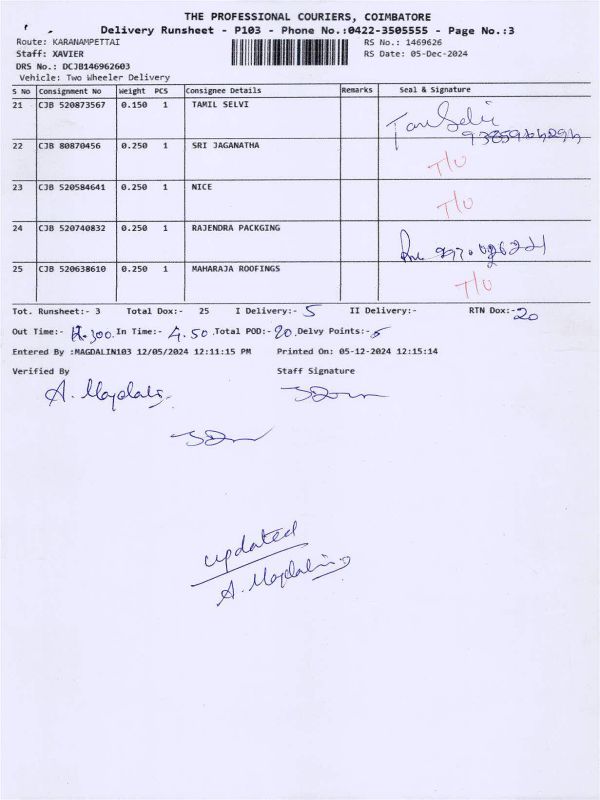 THE PROFESSIONAL COURIERS, COIMBATORE
Delivery Runsheet - P103 - Phone No.:0422-3505555 - Page No.:3
Route: KARANAMPETTAI RS No.: 1469626
Staff: XAVIER RS Date: 05-Dec-2024
DRS No.: DCJB146962603
Vehicle: Two Wheeler Delivery
S No Consignment No Weight PCS Consignee Details Remarks Seal & Signature
21 CJB 520873567 0.150 1 TAMIL SELVI
22 CJB 80870456 0.250 1 SRI JAGANATHA T/O
23 CJB 520584641 0.250 1 NICE T/O
24 CJB 520740832 0.250 1 RAJENDRA PACKGING
25 CJB 520638610 0.250 1 MAHARAJA ROOFINGS T/O
Tot. Runsheet:- 3 Total Dox:- 25 I Delivery:- 5 II Delivery:- RTN Dox:- 20
Out Time:- In Time:- 4.50 Total POD:- 20 Delvy Points:- 5
Entered By :MAGDALIN103 12/05/2024 12:11:15 PM Printed On: 05-12-2024 12:15:14
Verified By Staff Signature
A. Magdalin
updated
A. Magdalin